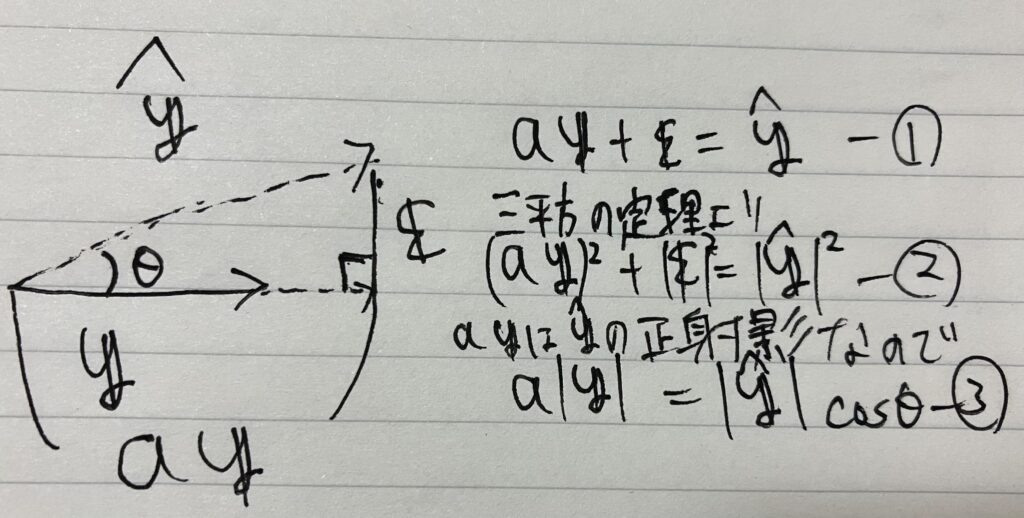 ŷ
θ
ε
y
ay
ay + ε = ŷ - ①
三平方の定理より
(ay)² + |ε|² = |ŷ|² - ②
ayはŷの正射影なので
a|y| = |ŷ| cosθ - ③